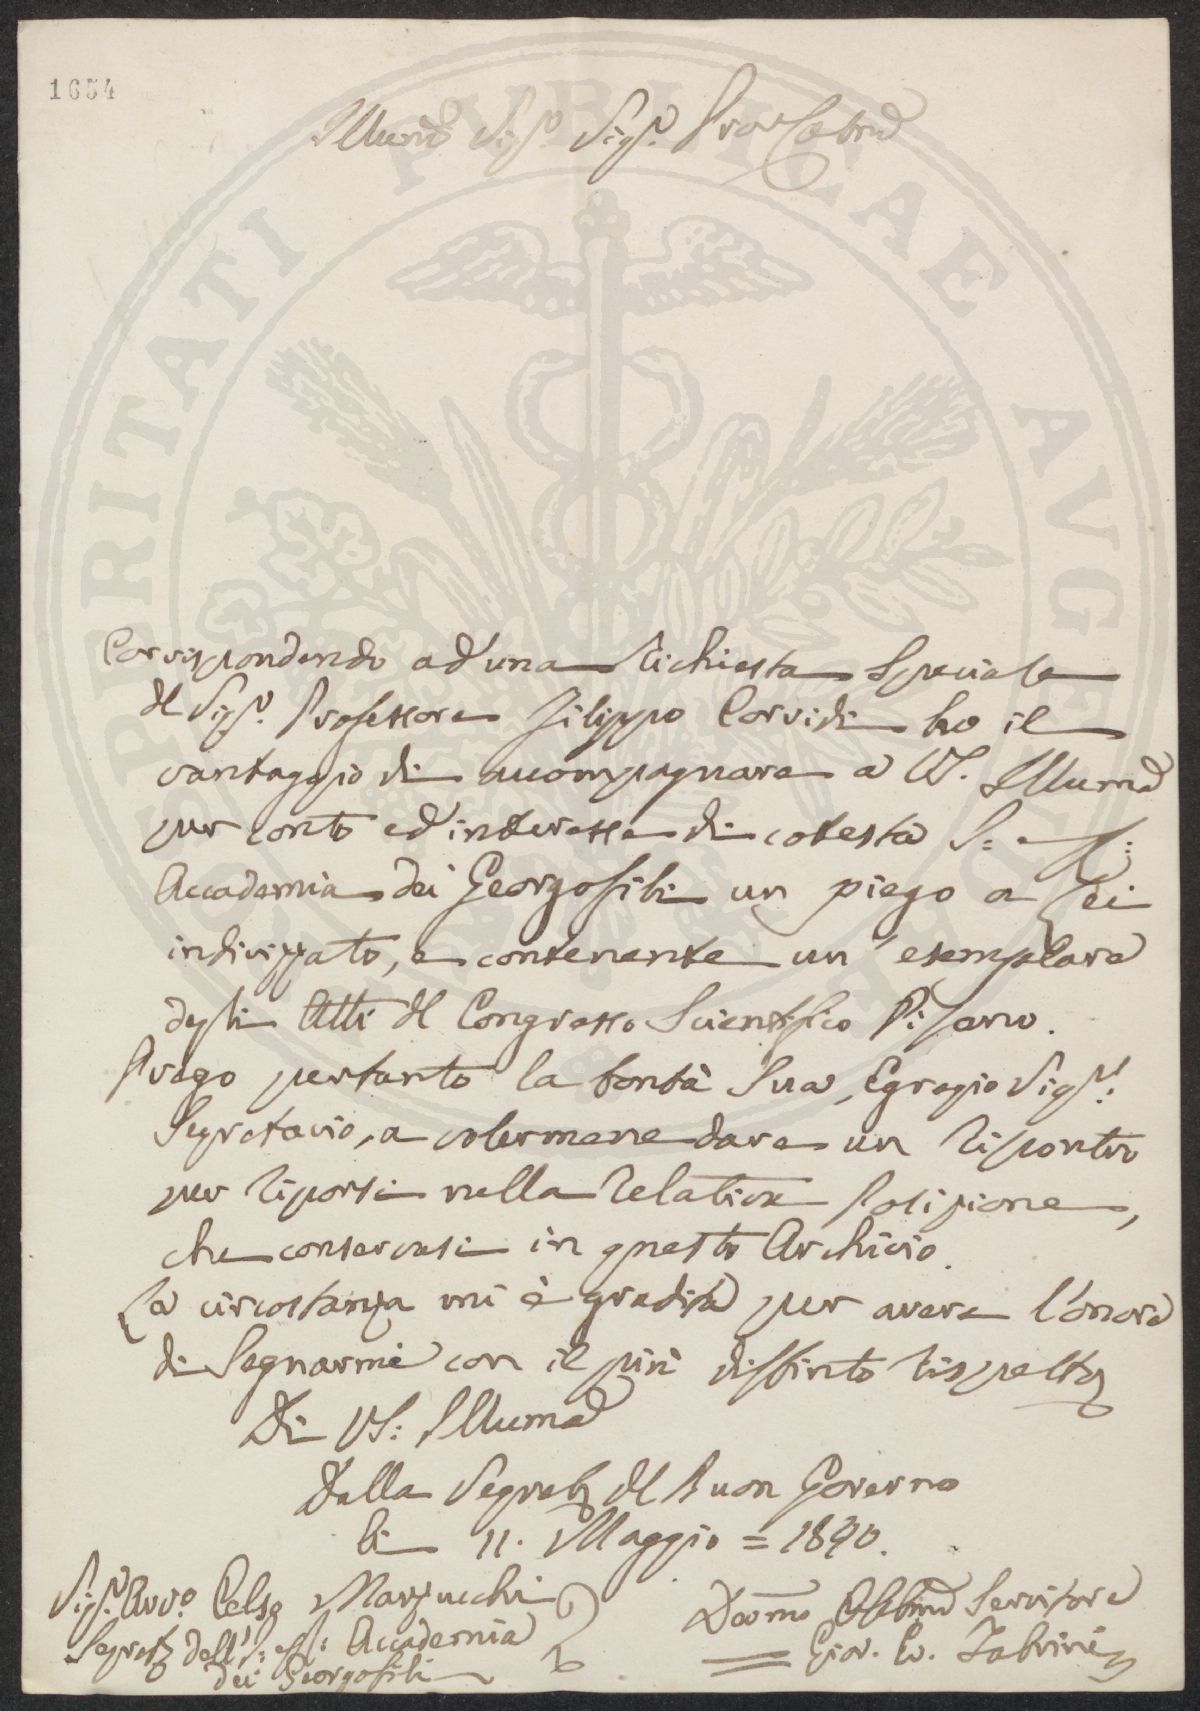 1654
Illmo Sigr. Sigr. Prone Colmo
Corrispondendo ad una richiesta speciale
del Sigr. Professore Filippo Corridi ho il
vantaggio di accompagnare a VS. Illuma
per conto ed interesse di cotesta I: e R:
Accademia dei Georgofili un piego a Lei
indirizzato, e contenente un' esemplare
degli Atti del Congresso Scientifico Pisano.
Prego pertanto la bontà Sua, Egregio Sigr:
Segretario, a volermene dare un riscontro
per riporsi nella relativa Posizione,
che conservasi in questo Archivio.
La circostanza mi è gradita per avere l'onore
di Segnarmi con il più distinto rispetto
Di VS: Illuma
Dalla Segreta del Buon Governo
li 11. Maggio = 1840.
Sigr. Avvo. Celso Marzucchi
Segreto dell'I: e R: Accademia
dei Georgofili
Devmo Obbmo Servitore
Giov. Ev. Fabrini
PROSPERITATI PUBLICAE AVGENDAE